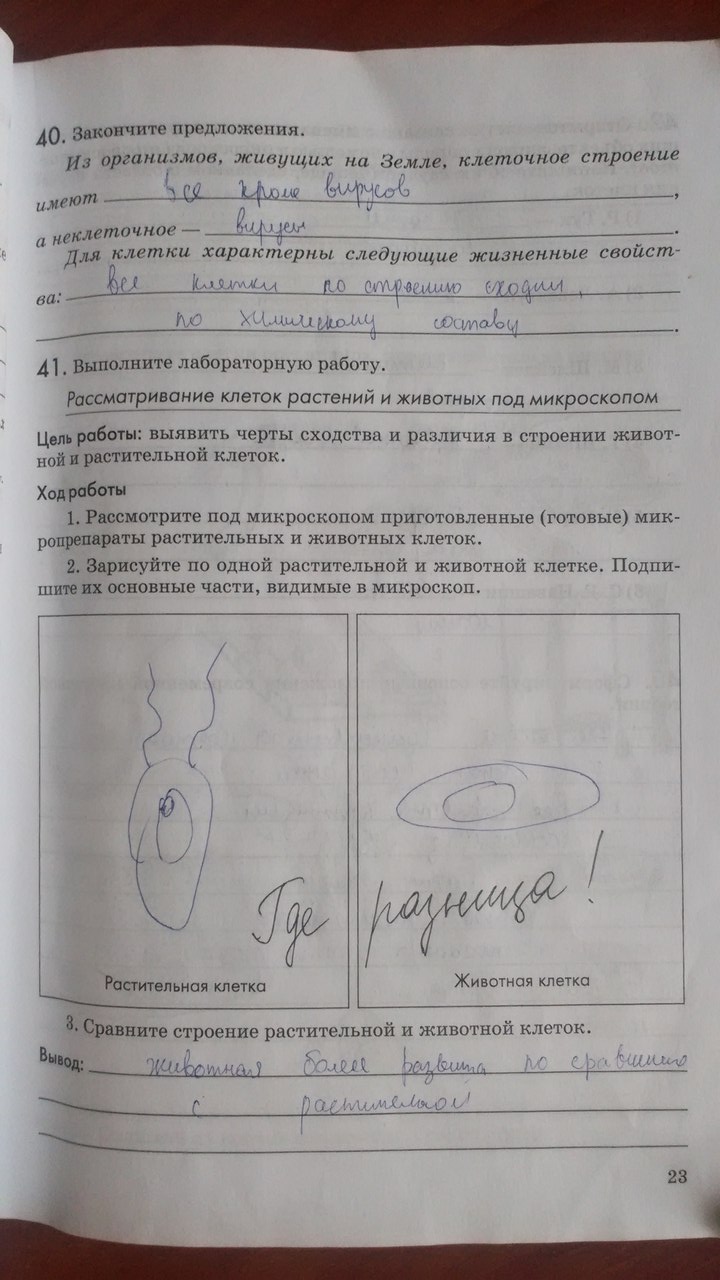 40. Закончите предложения.
Из организмов, живущих на Земле, клеточное строение
имеют все кроме вирусов,
а неклеточное — вирусы.
Для клетки характерны следующие жизненные свойст-
ва: все клетки по строению сходны,
по химическому составу.
41. Выполните лабораторную работу.
Рассматривание клеток растений и животных под микроскопом
Цель работы: выявить черты сходства и различия в строении живот-
ной и растительной клеток.
Ход работы
1. Рассмотрите под микроскопом приготовленные (готовые) мик-
ропрепараты растительных и животных клеток.
2. Зарисуйте по одной растительной и животной клетке. Подпи-
шите их основные части, видимые в микроскоп.
Где разница!
Растительная клетка
Животная клетка
3. Сравните строение растительной и животной клеток.
Вывод: животная более развита по сравнению
с растительной
23